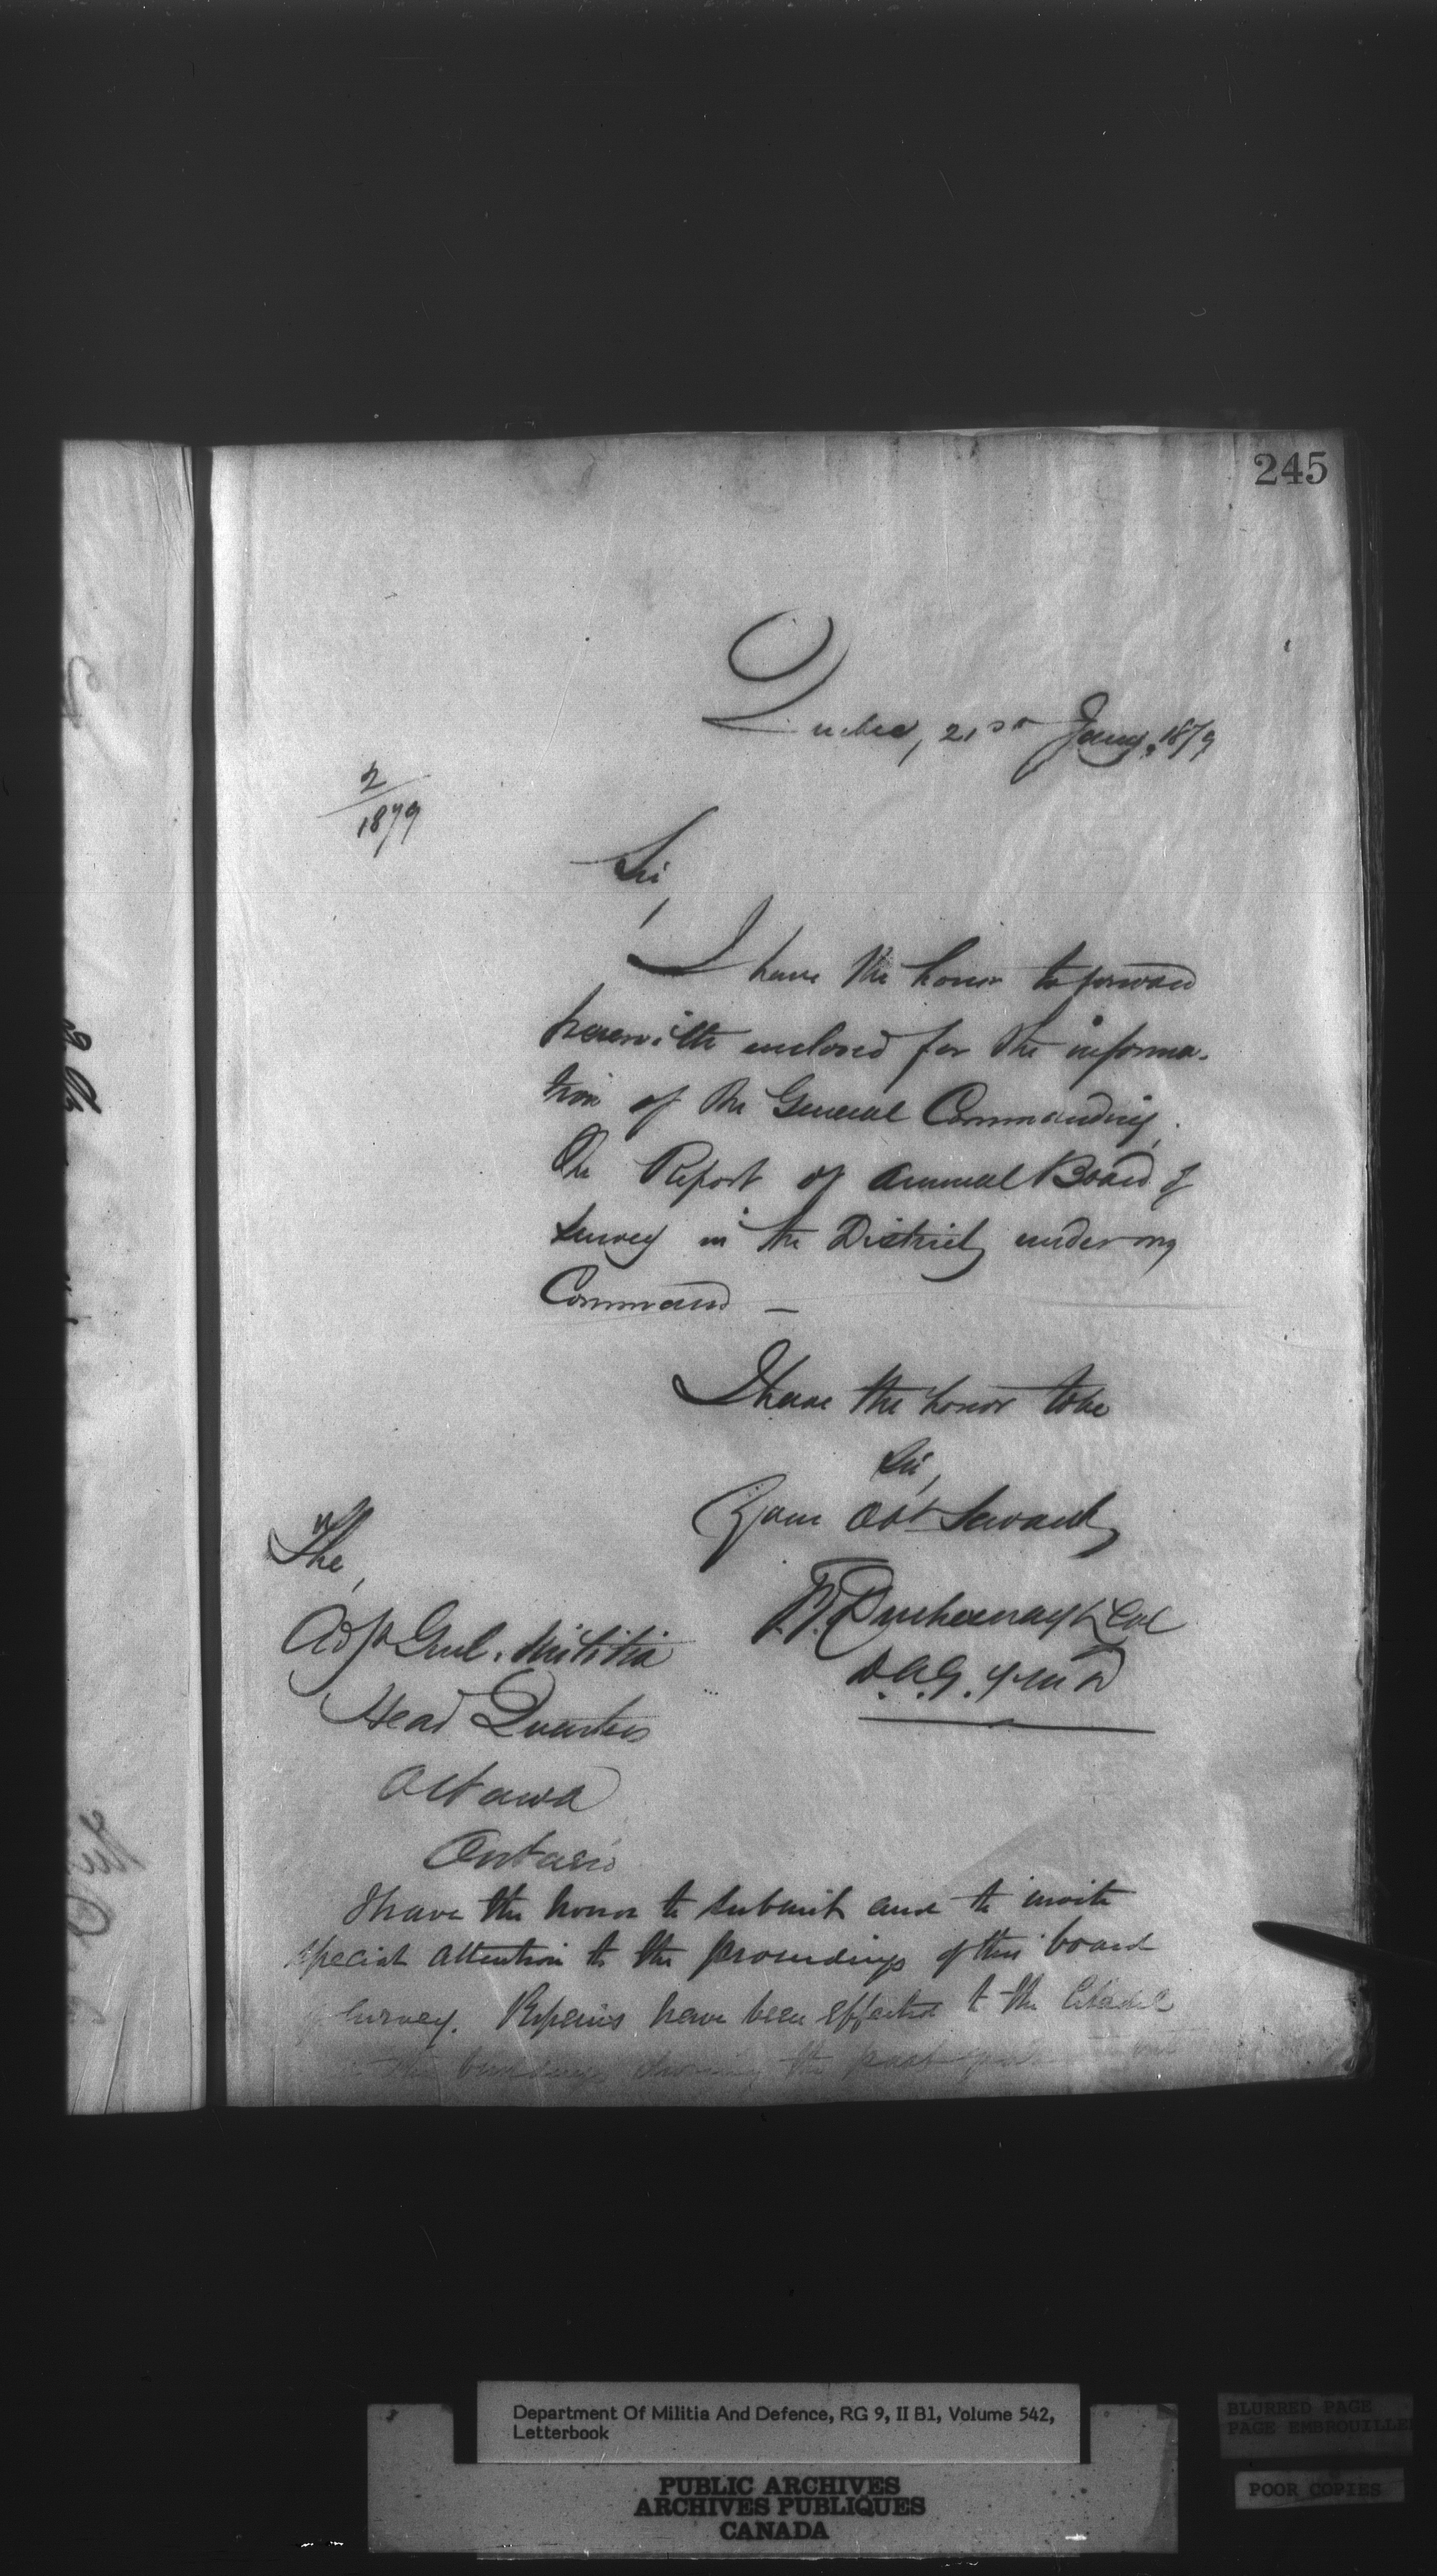 245
Quebec, 21st Jany, 1879
2
1879
Sir,
I have the honor to forward
herewith enclosed for the informa-
tion of the General Commanding,
The Report of annual Board of
Survey in the District under my
Command —
I have the honor to be
Sir,
Your Obt Servant
T. J. Duchesnay Lt Col
D.A.G. 7 M D
The,
Adjt Genl. Militia
Head Quarters
Ottawa
Ontario
I have the honor to submit and to invite
special attention to the proceedings of this board
of Survey. Repairs have been effected to the Citadel
the buildings during the past
Department Of Militia And Defence, RG 9, II B1, Volume 542,
Letterbook
PUBLIC ARCHIVES
ARCHIVES PUBLIQUES
CANADA
BLURRED PAGE
PAGE EMBROUILLE
POOR COPIES